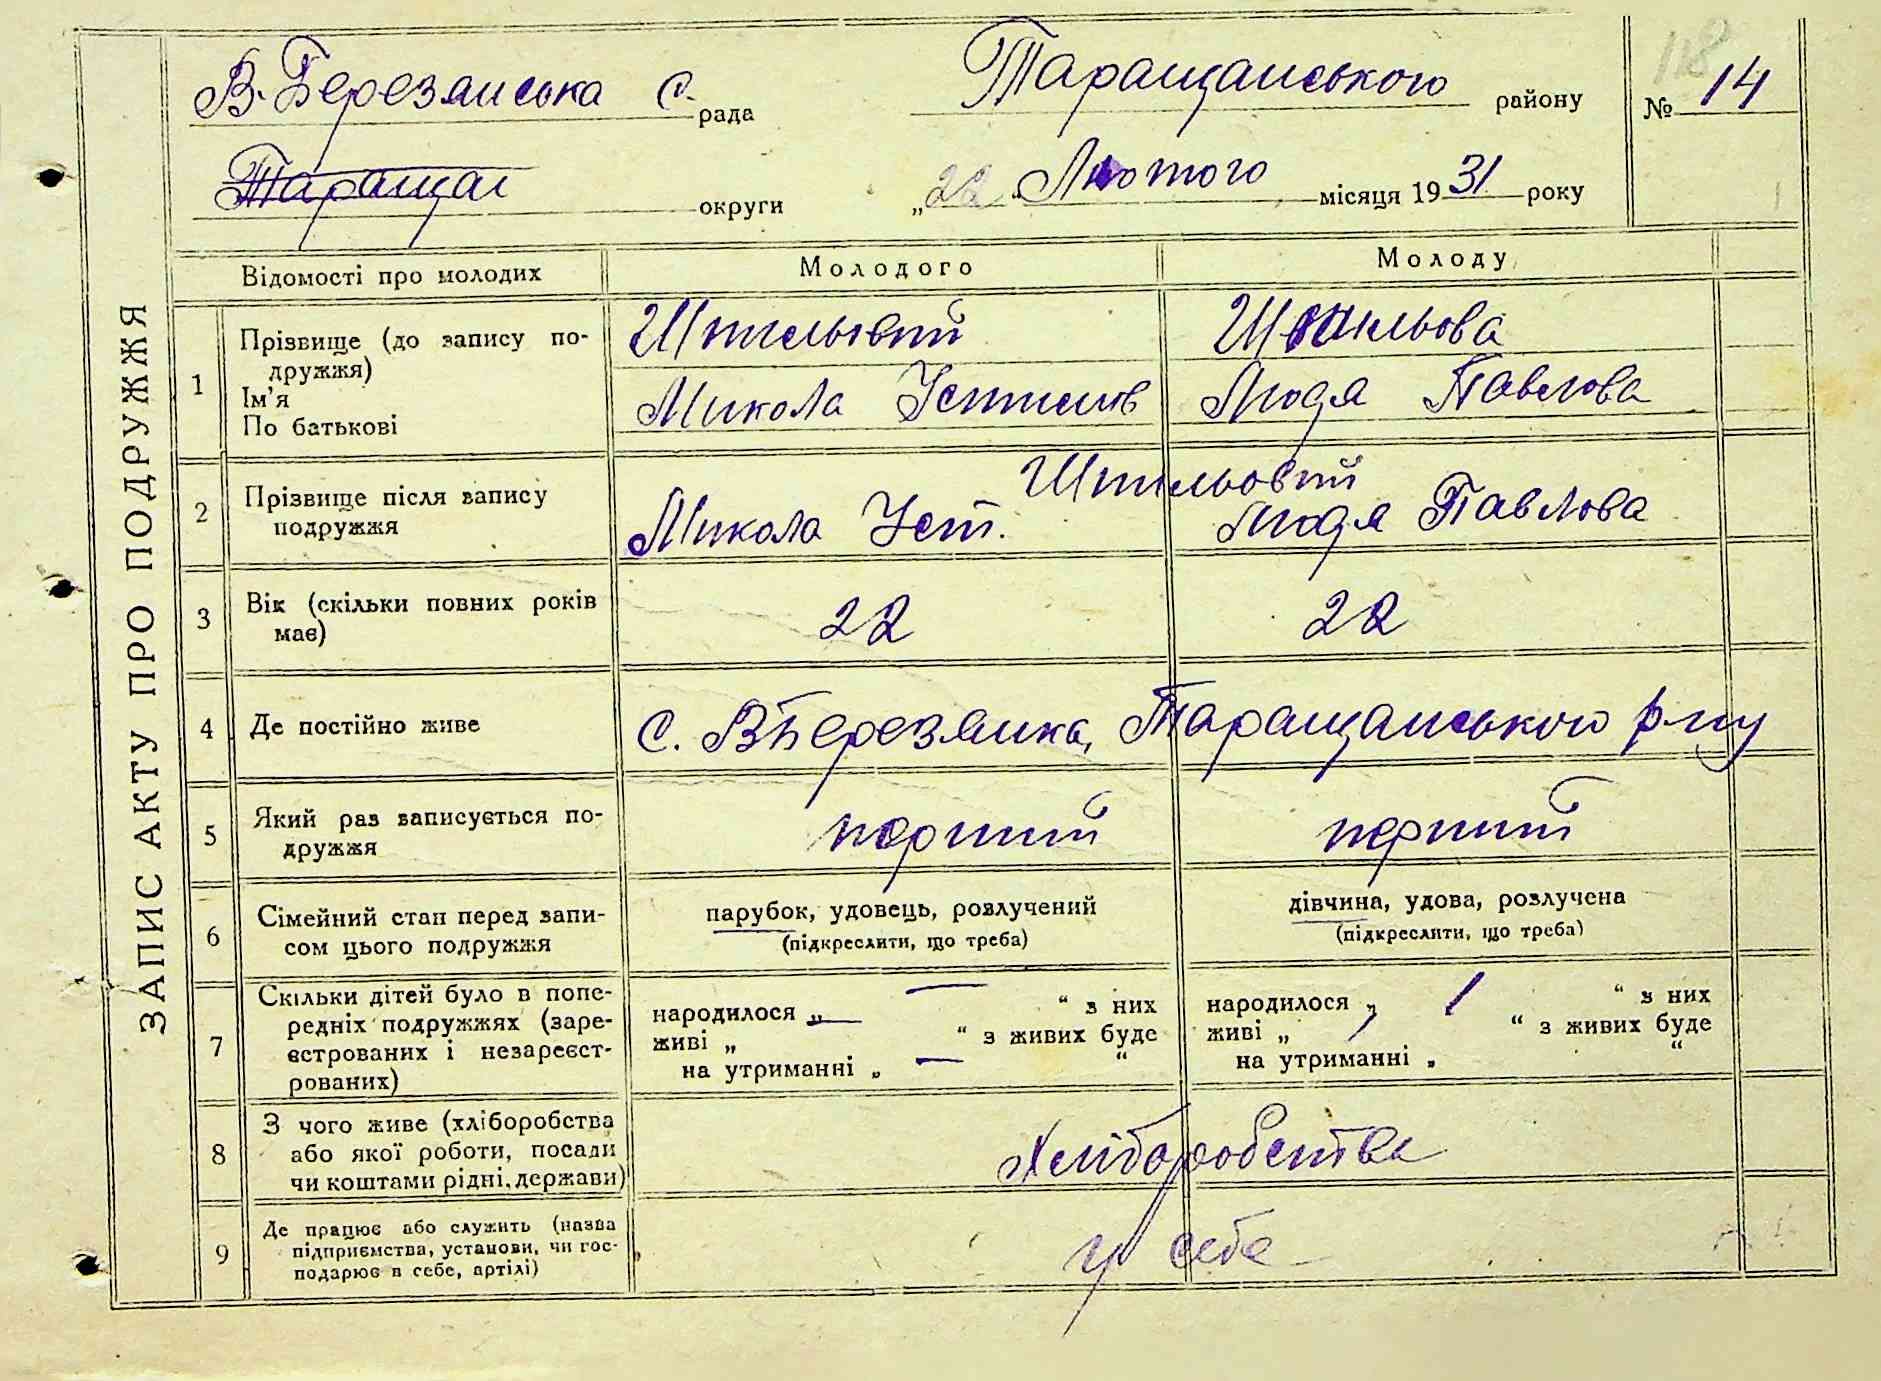 ЗАПИС АКТУ ПРО ПОДРУЖЖЯ
В. Березянська с. рада
Таращанського району
118
№ 14
Таращан округи
„22“ Лютого місяця 1931 року
Відомості про молодих
Молодого
Молоду
1
Прізвище (до запису по-
дружжя)
Ім'я
По батькові
Штильовий
Микола Устимів
Шкильова
Людя Павлова
2
Прізвище після запису
подружжя
Штильовий
Микола Уст.
Людя Павлова
3
Вік (скільки повних років
має)
22
22
4
Де постійно живе
с. ВБерезянка, Таращанського р-ну
5
Який раз записується по-
дружжя
перший
перший
6
Сімейний стан перед запи-
сом цього подружжя
парубок, удовець, розлучений
(підкреслити, що треба)
дівчина, удова, розлучена
(підкреслити, що треба)
7
Скільки дітей було в попе-
редніх подружжях (заре-
єстрованих і незареєст-
рованих)
народилося „ — “ з них
живі „ “ з живих буде
на утриманні „ — “
народилося „ “ з них
живі „ “ з живих буде
на утриманні „ “
8
З чого живе (хліборобства
або якої роботи, посади
чи коштами рідні, держави)
Хліборобства
9
Де працює або служить (назва
підприємства, установи, чи гос-
подарює в себе, артілі)
у себе